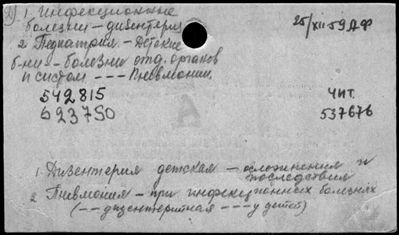 1. Инфекционные
болезни – дизентерия
25/XII-59 ДФ
2 Педиатрия – Детские
б-ни – болезни отд. органов
и систем – – – Пневмонии
542815
ЧИТ.
623750
537676
1. Дизентерия детская – осложнения и
последствия
2 Пневмония – при инфекционных болезнях
(– – дизентерийная – – – у детей)